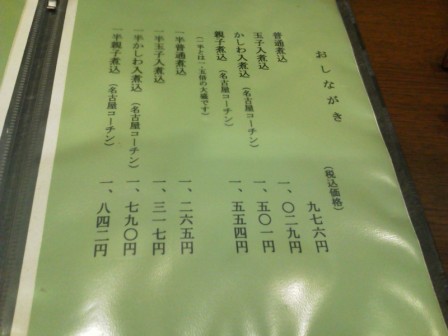 おしながき
(税込価格)
普通煮込 九七六円
玉子入煮込 一、〇二九円
かしわ入煮込(名古屋コーチン) 一、五〇一円
親子煮込(名古屋コーチン) 一、五五四円
(一半とは一・五倍の大盛です)
一半普通煮込 一、二六五円
一半玉子入煮込 一、三一七円
一半かしわ入煮込(名古屋コーチン) 一、七九〇円
一半親子煮込(名古屋コーチン) 一、八四二円